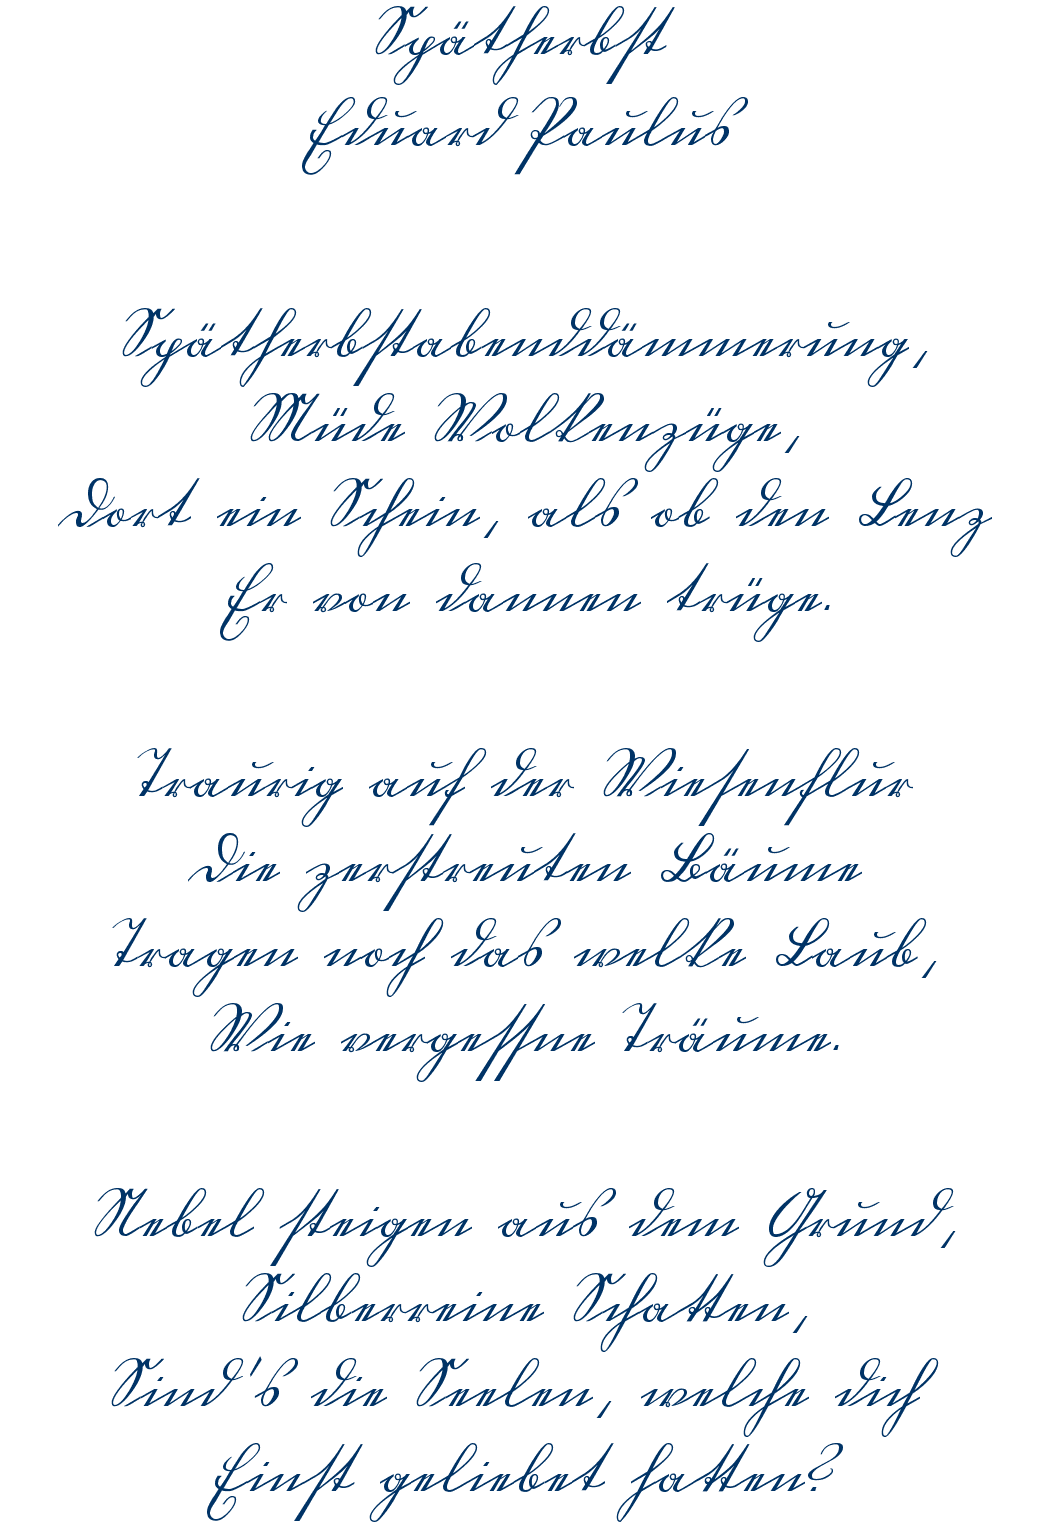 Spätherbst
Eduard Paulus
Spätherbstabenddämmerung,
Müde Wolkenzüge,
Dort ein Schein, als ob den Lenz
Er von dannen trüge.
Traurig auf der Wiesenflur
Die zerstreuten Bäume
Tragen noch das welke Laub,
Wie vergessne Träume.
Nebel steigen aus dem Grund,
Silberreine Schatten,
Sind's die Seelen, welche dich
Einst geliebet hatten?